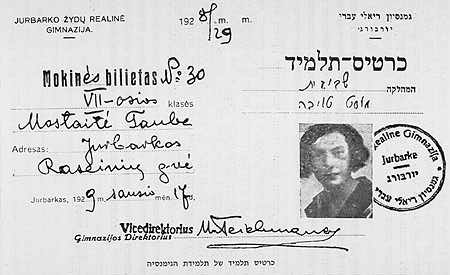 JURBARKO ŽYDŲ REALINĖ
GIMNAZIJA.
192 8/29 m. m.
גמנסיון ריאלי עברי
יורבורג
Mokinės bilietas № 30
VII-osios klasės
Mostaitė Taube
Adresas: Jurbarkos
Raseinių gvė
Jurbarkas, 1929 sausio mėn. 17 d.
Vicedirektorius
Gimnazijos Direktorius
כרטיס-תלמיד
המחלקה שביעית
טויבה
Realinė Gimnazija
Jurbarke
יורבורג
גמנסיון ריאלי עברי
כרטיס תלמיד של תלמידת הגימנסיה